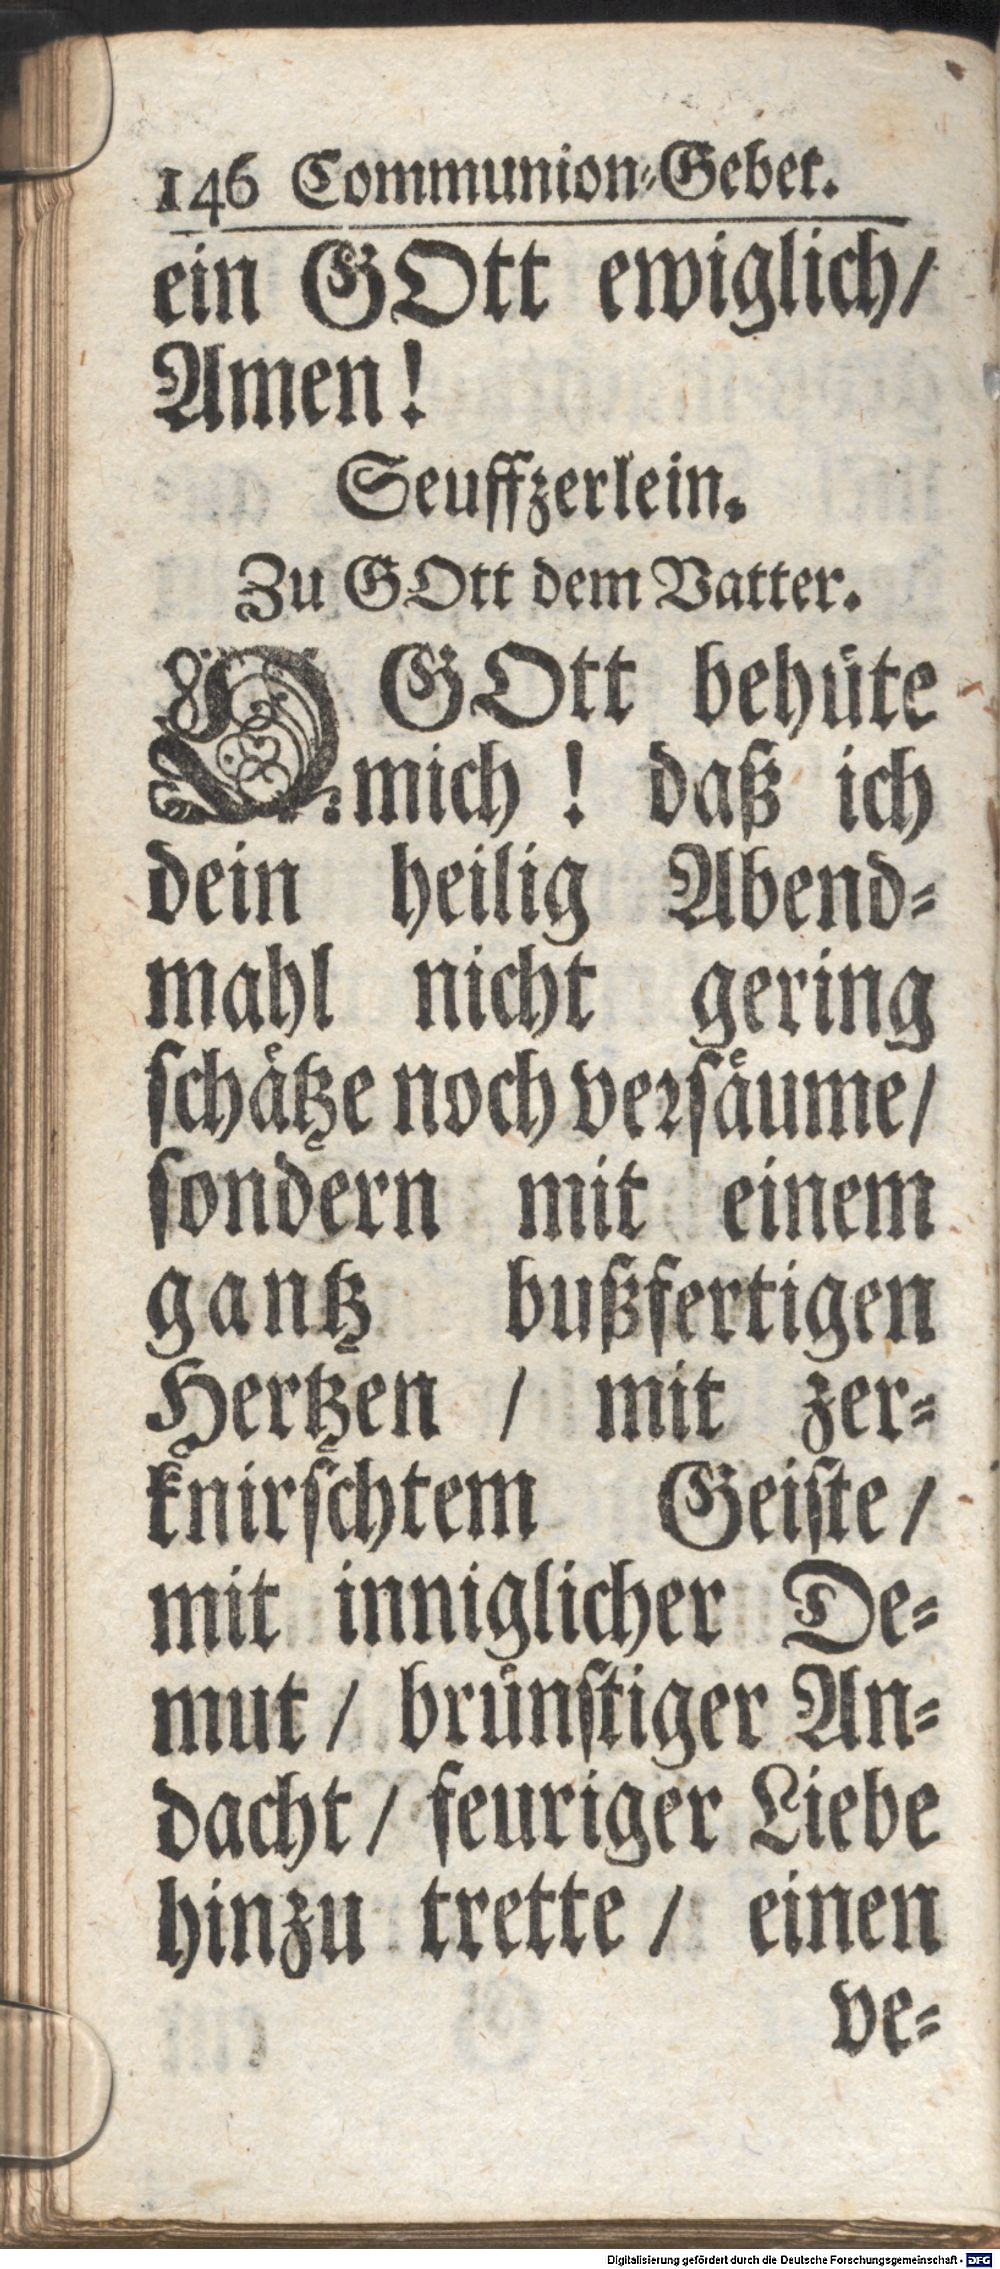 146 Communion-Gebet.
ein GOtt ewiglich/
Amen!
Seuffzerlein.
Zu GOtt dem Vatter.
O GOtt behüte
mich! daß ich
dein heilig Abend-
mahl nicht gering
schätze noch versäume/
sondern mit einem
gantz bußfertigen
Hertzen / mit zer-
knirschtem Geiste /
mit inniglicher De-
mut / brünstiger An-
dacht / feuriger Liebe
hinzu trette / einen
ve-
Digitalisierung gefördert durch die Deutsche Forschungsgemeinschaft - DFG